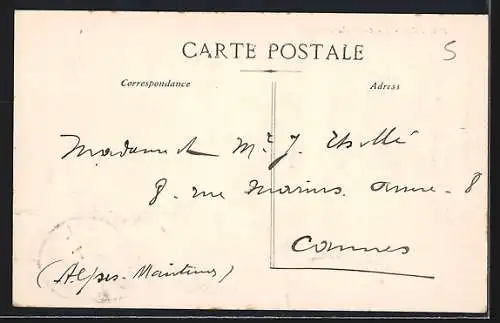 CARTE POSTALE
5
Correspondance
Adress
Madame et Mr. J.
8. rue Marius. 8
Cannes
(Alpes-Maritimes)